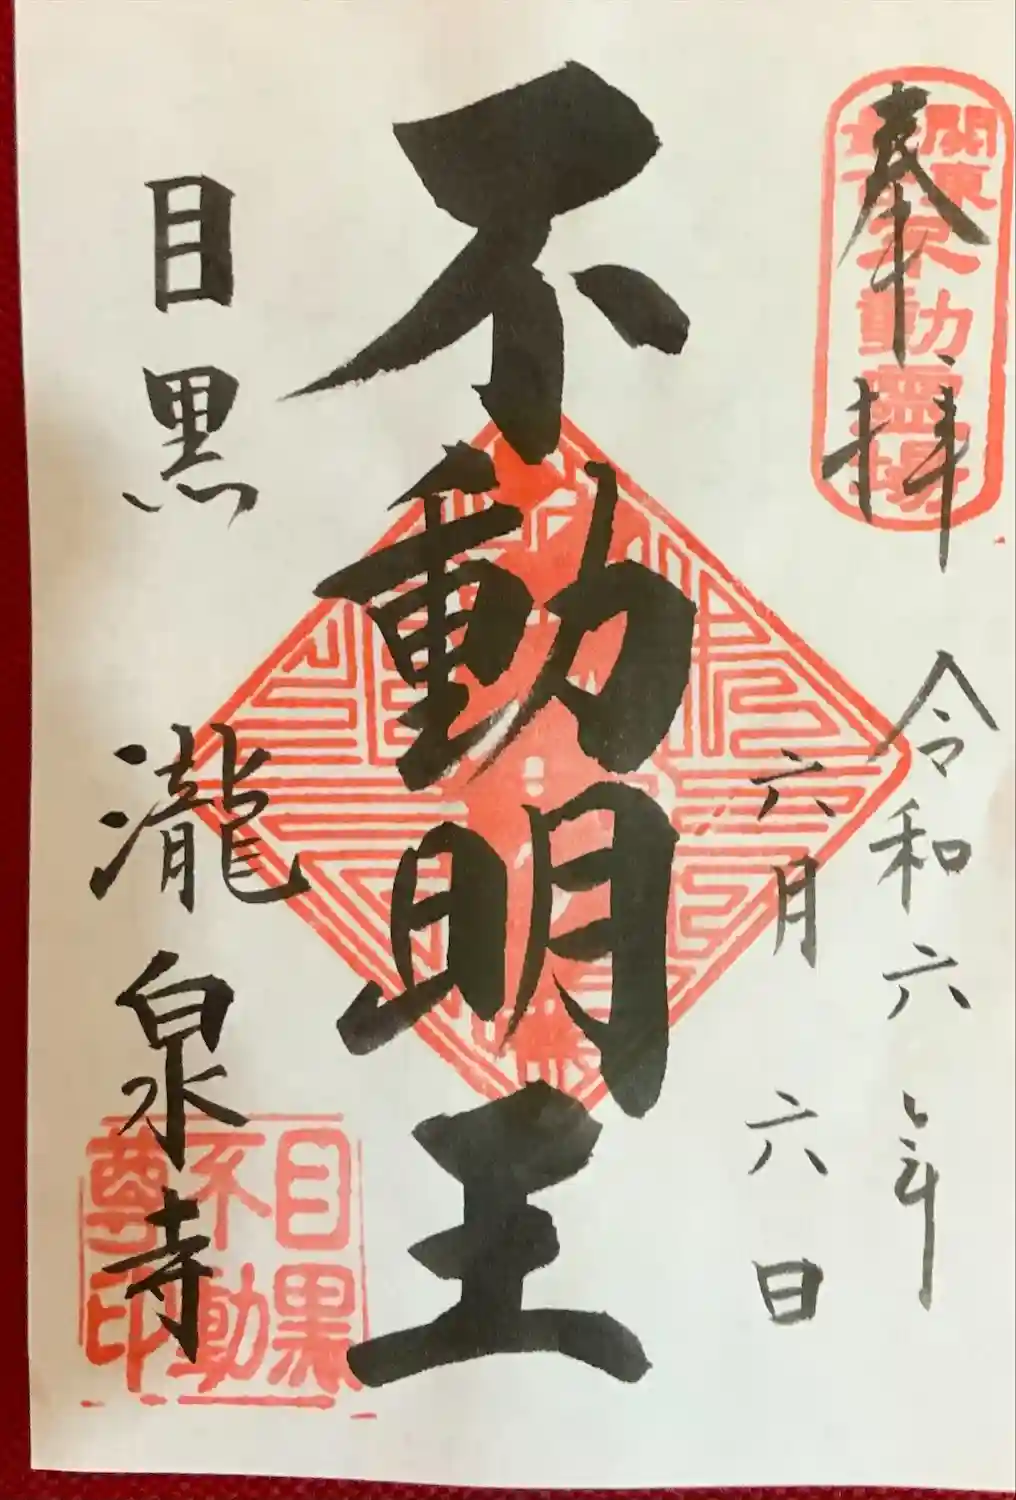 奉拝
關東
不動霊場
令和六年
六月六日
不動明王
目黒 瀧泉寺
目黒
不動
尊印